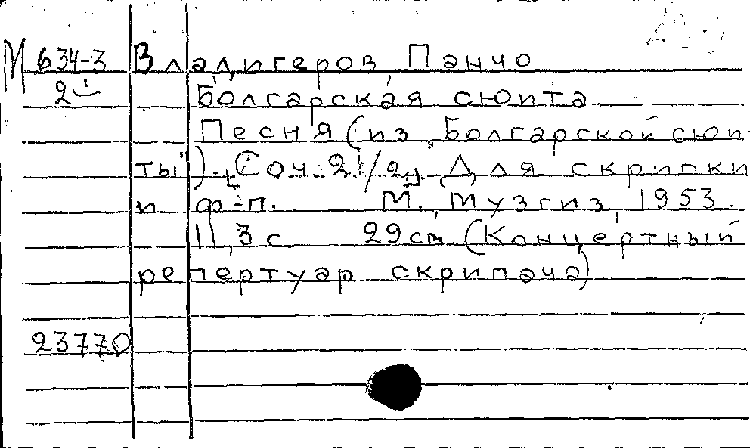 М 634-3 Владигеров, Панчо
2 Болгарская сюита
Песня (из "Болгарской сюи-
ты"). [Соч. 21/2]. Для скрипки
и ф-п. М., Музгиз, 1953.
11, 3 с 29 см (Концертный
репертуар скрипача)
23770